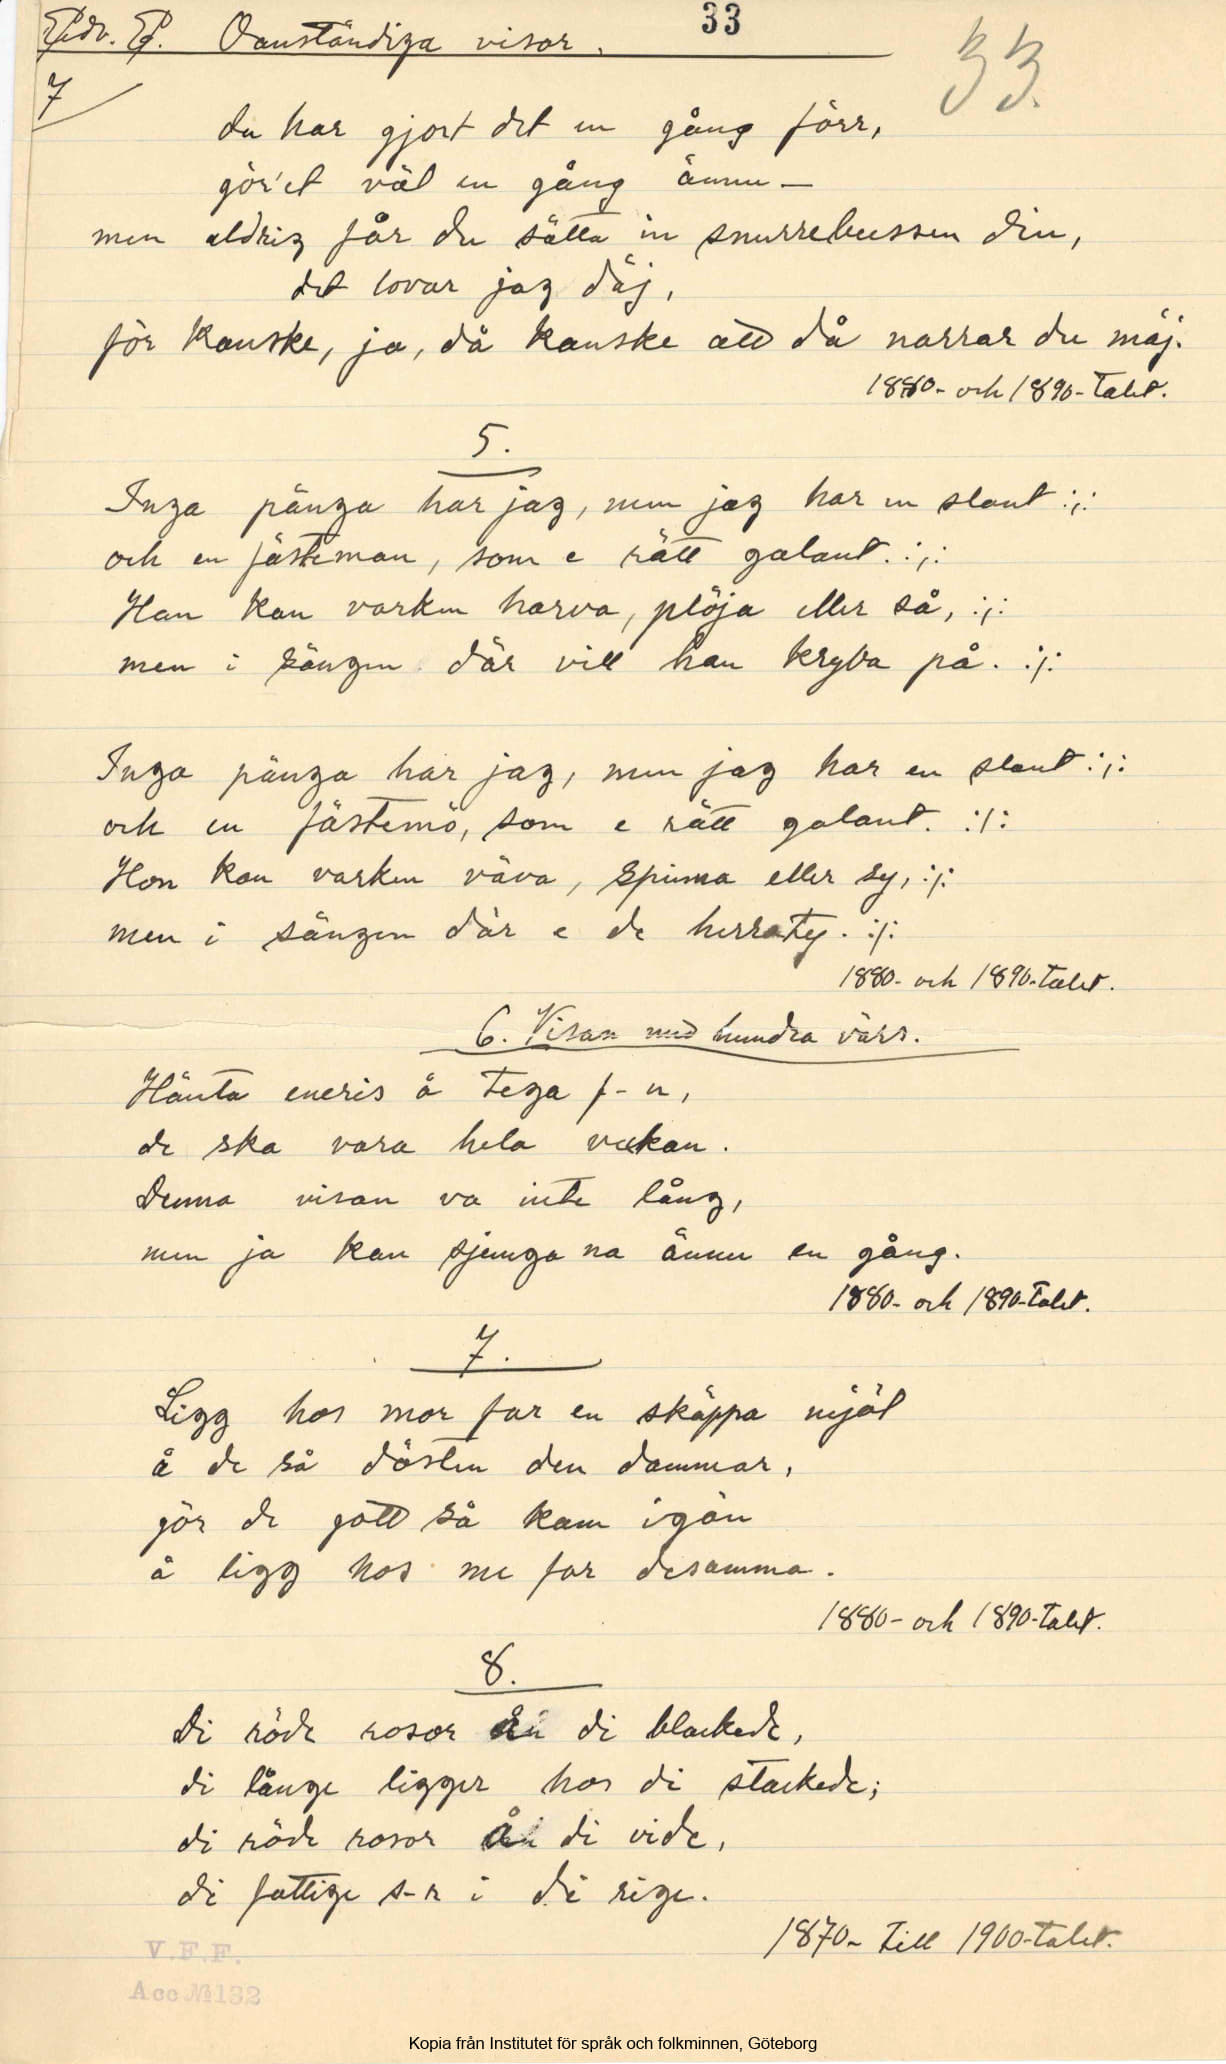 Edv. P. Oanständiga visor. 33
7 33.
du har gjort det en gång förr,
gör'et väl en gång ännu –
men aldrig får du sätta in snurrebussen din,
det lovar jag däj,
för kanske, ja, då kanske att då narrar du mäj.
1880- och 1890-talet.
5.
Inga pänga har jag, men jag har en slant :/:
och en fästeman, som e rätt galant. :/:
Han kan varken harva, plöja eller så, :/:
men i sängen där vill han kryba på. :/:
Inga pänga har jag, men jag har en slant :/:
och en fästemö, som e rätt galant. :/:
Hon kan varken väva, spinna eller sy, :/:
men i sängen där e de herraty. :/:
1880- och 1890-talet.
6. Visan med hundra värs.
Hänta eneris å tega f-n,
de ska vara hela veckan.
Denna visan va inte lång,
men ja kan sjunga na ännu en gång.
1880- och 1890-talet.
7.
Ligg hos mor far en skäppa mjöl
å de så dösten den dammar,
gör de gott så kam igän
å ligg hos me far desamma.
1880- och 1890-talet.
8.
Di röde rosor å di blackede,
di långe ligger hos di stackede;
di röde rosor å di vide,
di fattige s-r i di rige.
1870- till 1900-talet.
V.F.F.
Acc № 132
Kopia från Institutet för språk och folkminnen, Göteborg